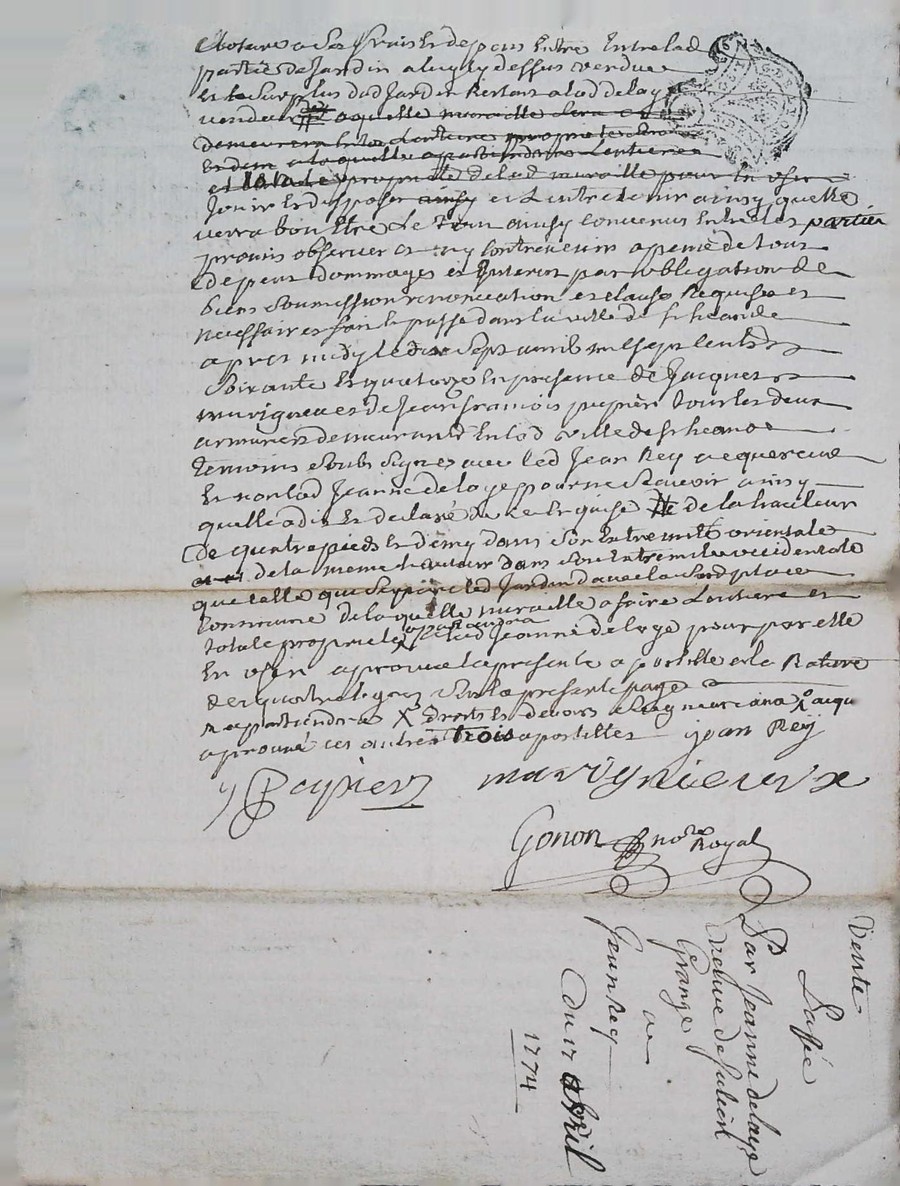 Cloturer a Ses frais Et depens Entre Entre lad
partie de Jardin a luy cy dessus vendue
Et le Surplus dud Jardin Restant a lad delaye
venderesse # laquelle muraille Sera
demeurera
Et dem a laquelle apartiendra Lentiere
et totale propriete de lad muraille pour En user
Jouir Et disposer ainsy et Lentretenir ainsy quelle
verra bon Etre Le tout ainsy convenus Entre les parties
promis observer et ny contrevenir a peine de tous
depens dommages et Interets par obligation de
biens Soumission renonciation et clause Requises et
necessaires fait et passé dans la ville de St heand
apres midy le dix Sept avril mil Sept Cents
Soixante Et quatorze En presence de Jacques
marigneux et de Jean francois papier tous les deux
armuriers demeurants En lad ville de St heand
temoins Soub Signés avec led Jean Rey acquereur
Et non lad Jeanne delaye pour ne Scavoir ainsy
quelle a dit Et declaré de ce Enquise # de la hauteur
de quatre pieds Et demy dans Son Extremité orientale
et de la meme hauteur dans Son Extremité occidentale
que celle qui Separe led Jardin davec la Susd place
Commune de laquelle muraille a faire Lentiere et
totale propriete apartiendra
a lad Jeanne delaye pour par elle
En user aprouvé la presente apostille et la Rature
de quatre lignes Sur la presente page
napartiendra X droits Et devoirs Seigneuriaux X acqu
aprouvé ces autres trois apostilles jean Rey
J f papier marigneux
Gonon nore Royal
Vente
Passée
Par Jeanne delaye
veuve de Julien
Grange
a
Jean Rey
du 17 avril
1774